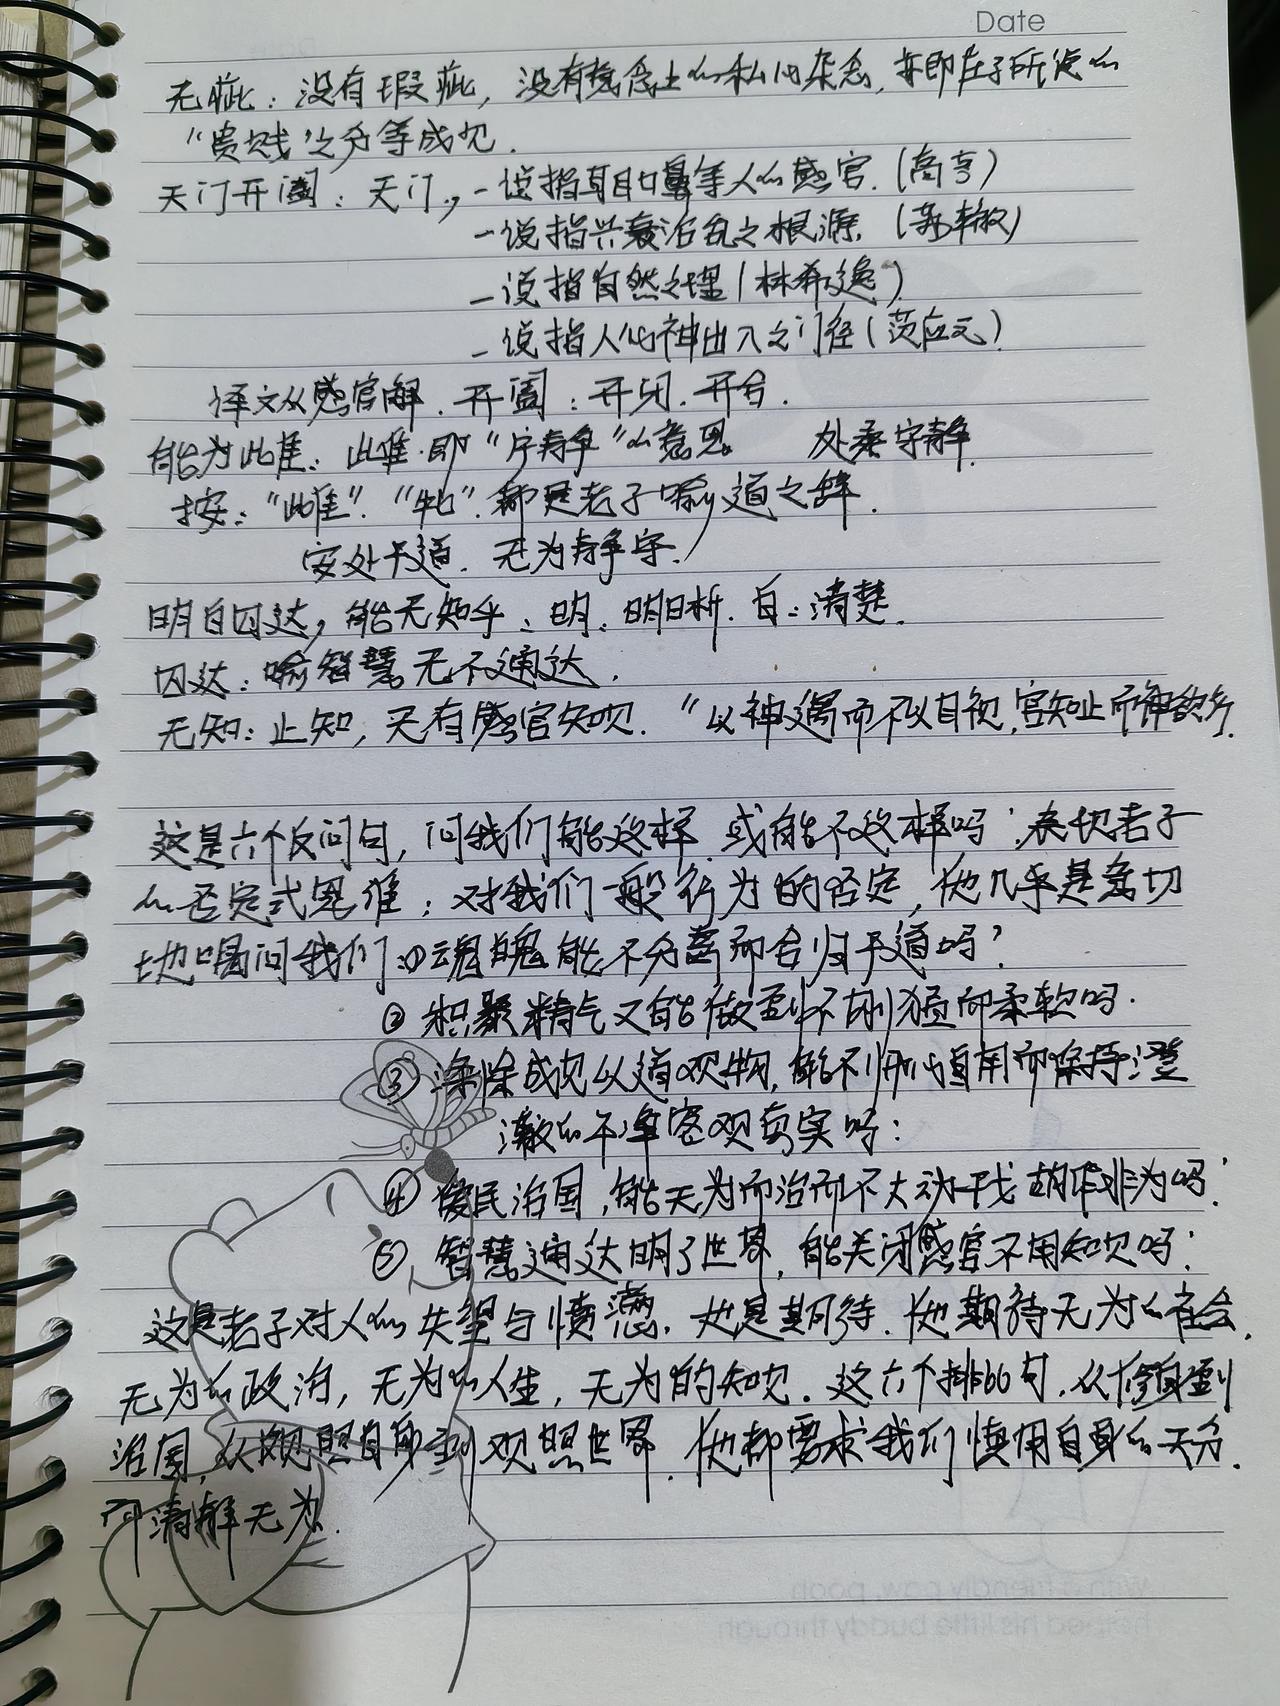 Date
无疵：没有瑕疵，没有意念上的私心杂念，亦即庄子所说的
“贵贱”之分等成见．
天门开阖：天门，一说指耳目口鼻等人的感官．（高亨）
一说指兴衰治乱之根源．（苏辙）
一说指自然之理（林希逸）
一说指人心神出入之门径（范应元）
译文从感官解．开阖：开闭．开合．
能为此雌：此雌．即“守静”的意思 处柔守静．
按：“此雌”．“牝”．都是老子喻道之辞．
安处于道．无为静守．
明白四达，能无知乎：明：明晰．白：清楚．
四达：喻智慧无不通达．
无知：止知，没有感官知识．“以神遇而不以目视，官知止而神欲行
这是六个反问句，问我们能这样．或能不这样吗？表现老子
的否定式思维：对我们一般行为的否定，他几乎是急切
地喝问我们：①魂魄能不分离而合归于道吗？
② 积聚精气又能做到不刚猛而柔软吗．
③ 涤除成见以道观物，能不师心自用而保持澄
澈的干净客观真实吗：
④ 爱民治国，能无为而治而不大动干戈胡作非为吗？
⑤、智慧通达明了世界，能关闭感官不用知识吗？
这是老子对人的失望与愤懑．也是期待．他期待无为的社会．
无为的政治，无为的人生，无为的知识．这六个排比句．从修身到
治国，从观照自身到观照世界．他都要求我们慎用自身的天分．
清静无为．
with a friendly paw, pooh
helped his little buddy through